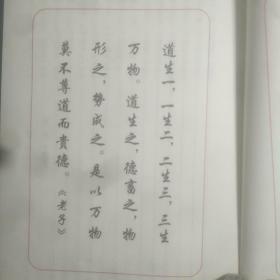 道生一，一生二，二生三，三生
万物。道生之，德畜之，物
形之，势成之。是以万物
莫不尊道而贵德。《老子》